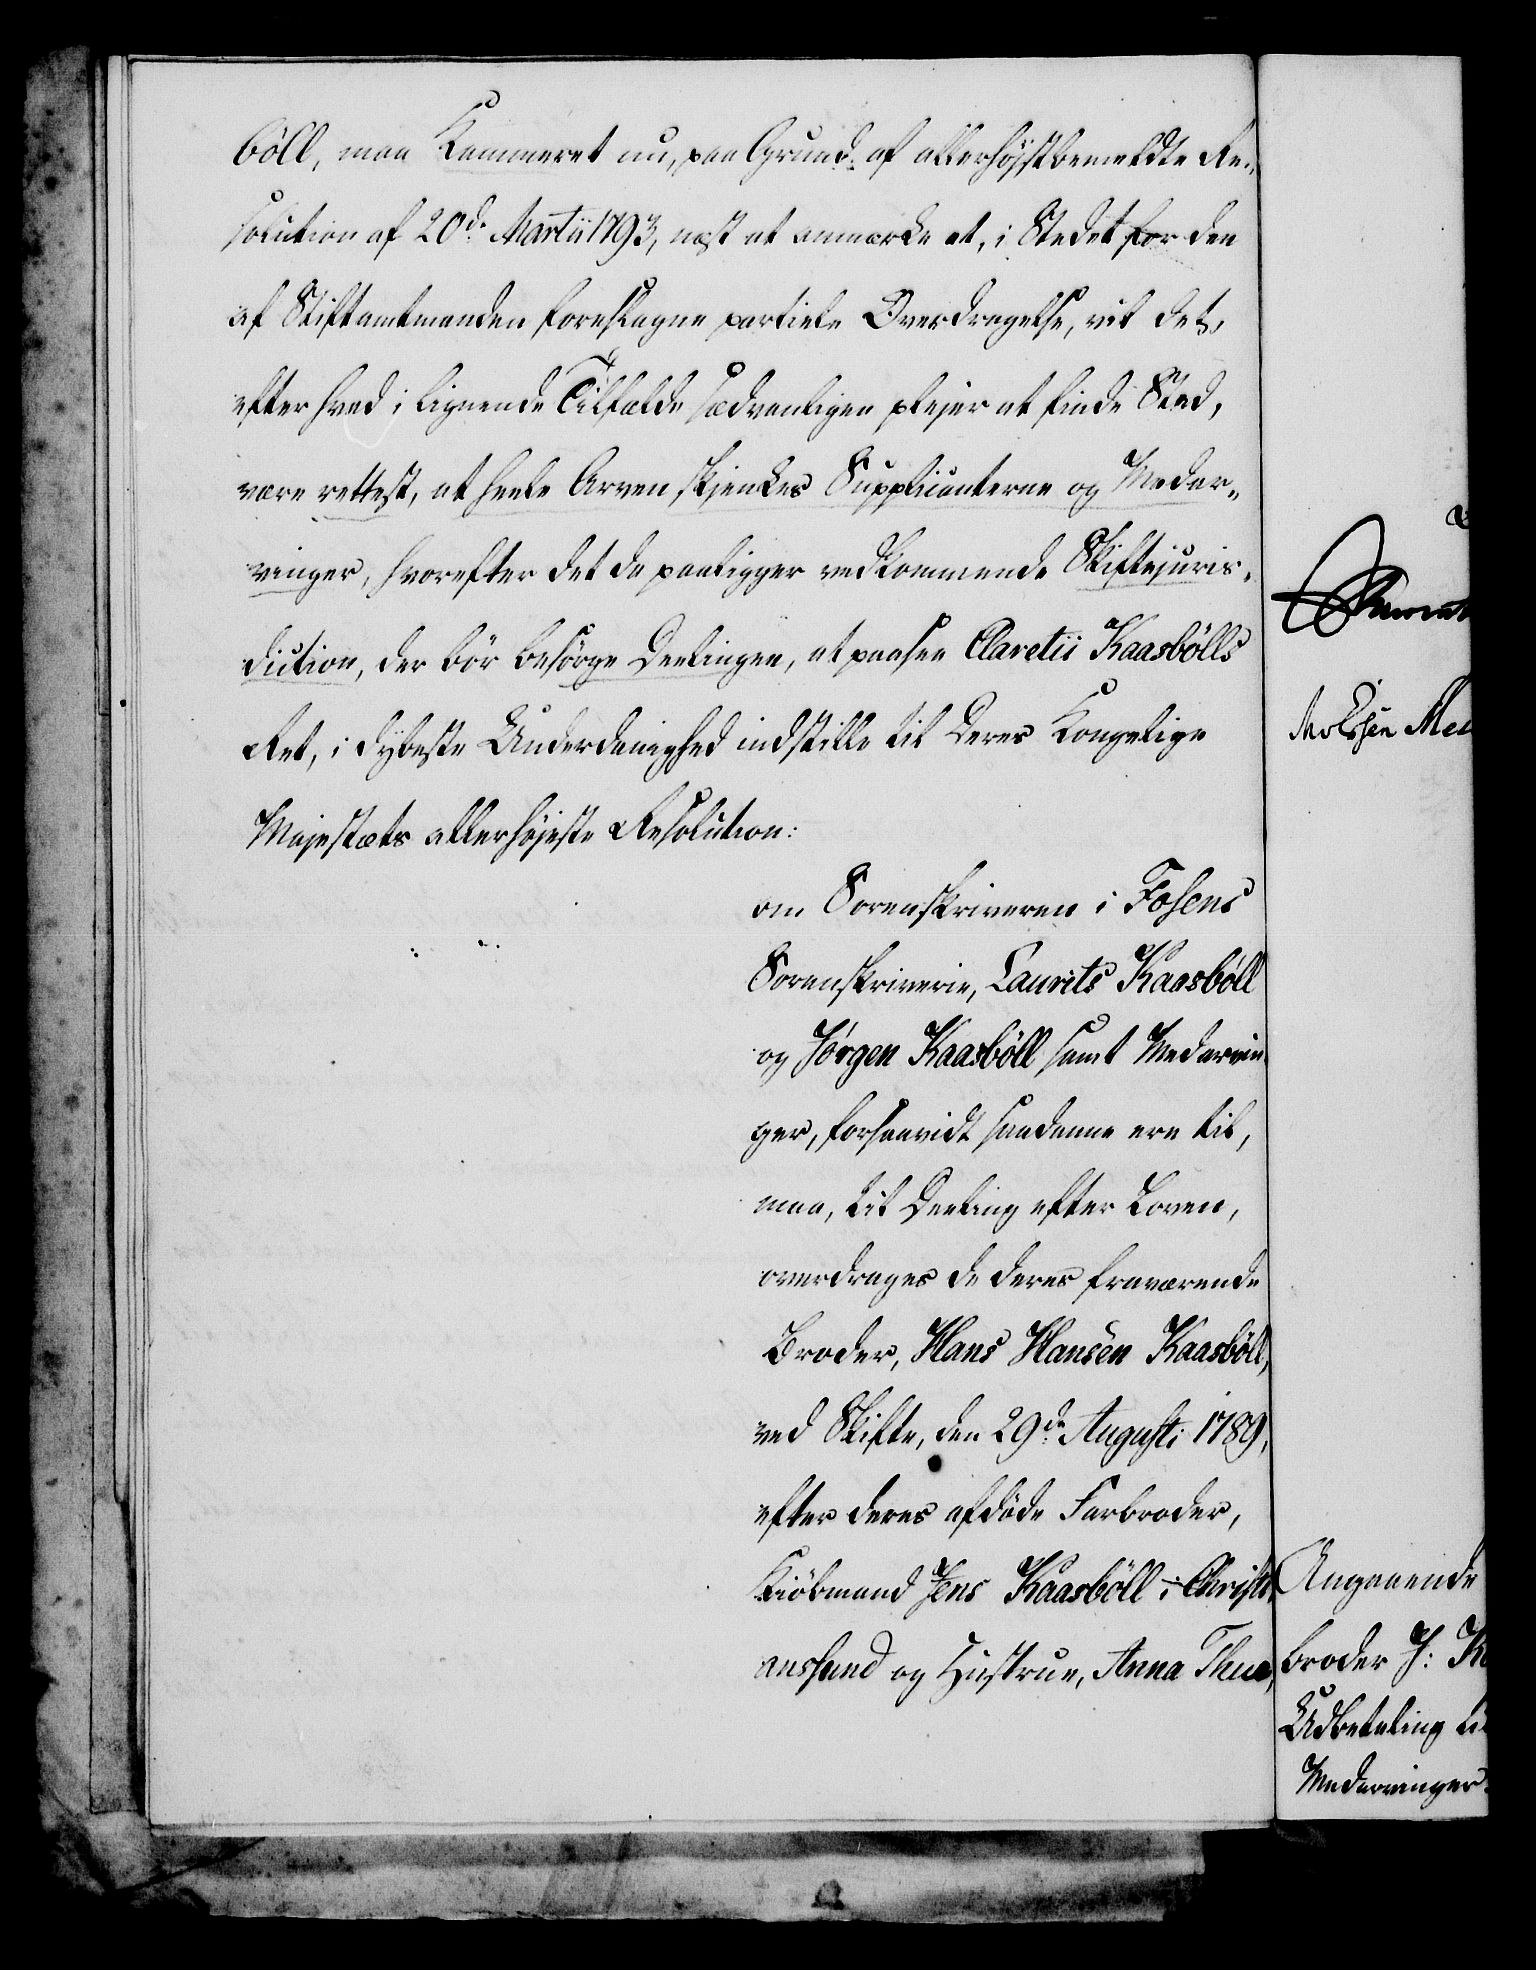 böll, maa Kammeret nu, paa Grund af allerhøjstbemeldte Re-
solution af 20de Martii 1793, næst at anmærke at, i Stedet for den
af Stiftamtmanden foreslagne partiele Overdragelse, vil det,
efter hvad i lignende Tilfælde sædvanligen plejer at finde Sted,
være rettest, at heele Arven skjenkes Supplicanterne og Medar-
vinger, hvorefter det da paaligger vedkommende Skiftejuris-
diction, der bör besörge Deelingen, at paasee Claretii Kaasbölls
Ret, i dybeste Underdanighed indstille til Deres Kongelige
Majestæts allerhøjeste Resolution:
om Sorenskriveren i Fosens
Sorenskriverie, Laurits Kaasböll
og Jörgen Kaasböll samt Medarvin-
ger, forsaavidt saadanne ere til,
maa, til Deeling efter Loven,
overdrages de deres fraværende
Broder, Hans Hansen Kaasböll,
ved Skifte, den 29de Augusti 1789,
efter deres afdöde Farbroder,
Kiöbmand Jens Kaasböll i Christi-
anssund og Hustrue, Anna Thue,
Angaaende
broder J: K
Udbetaling til
Medarvinger.